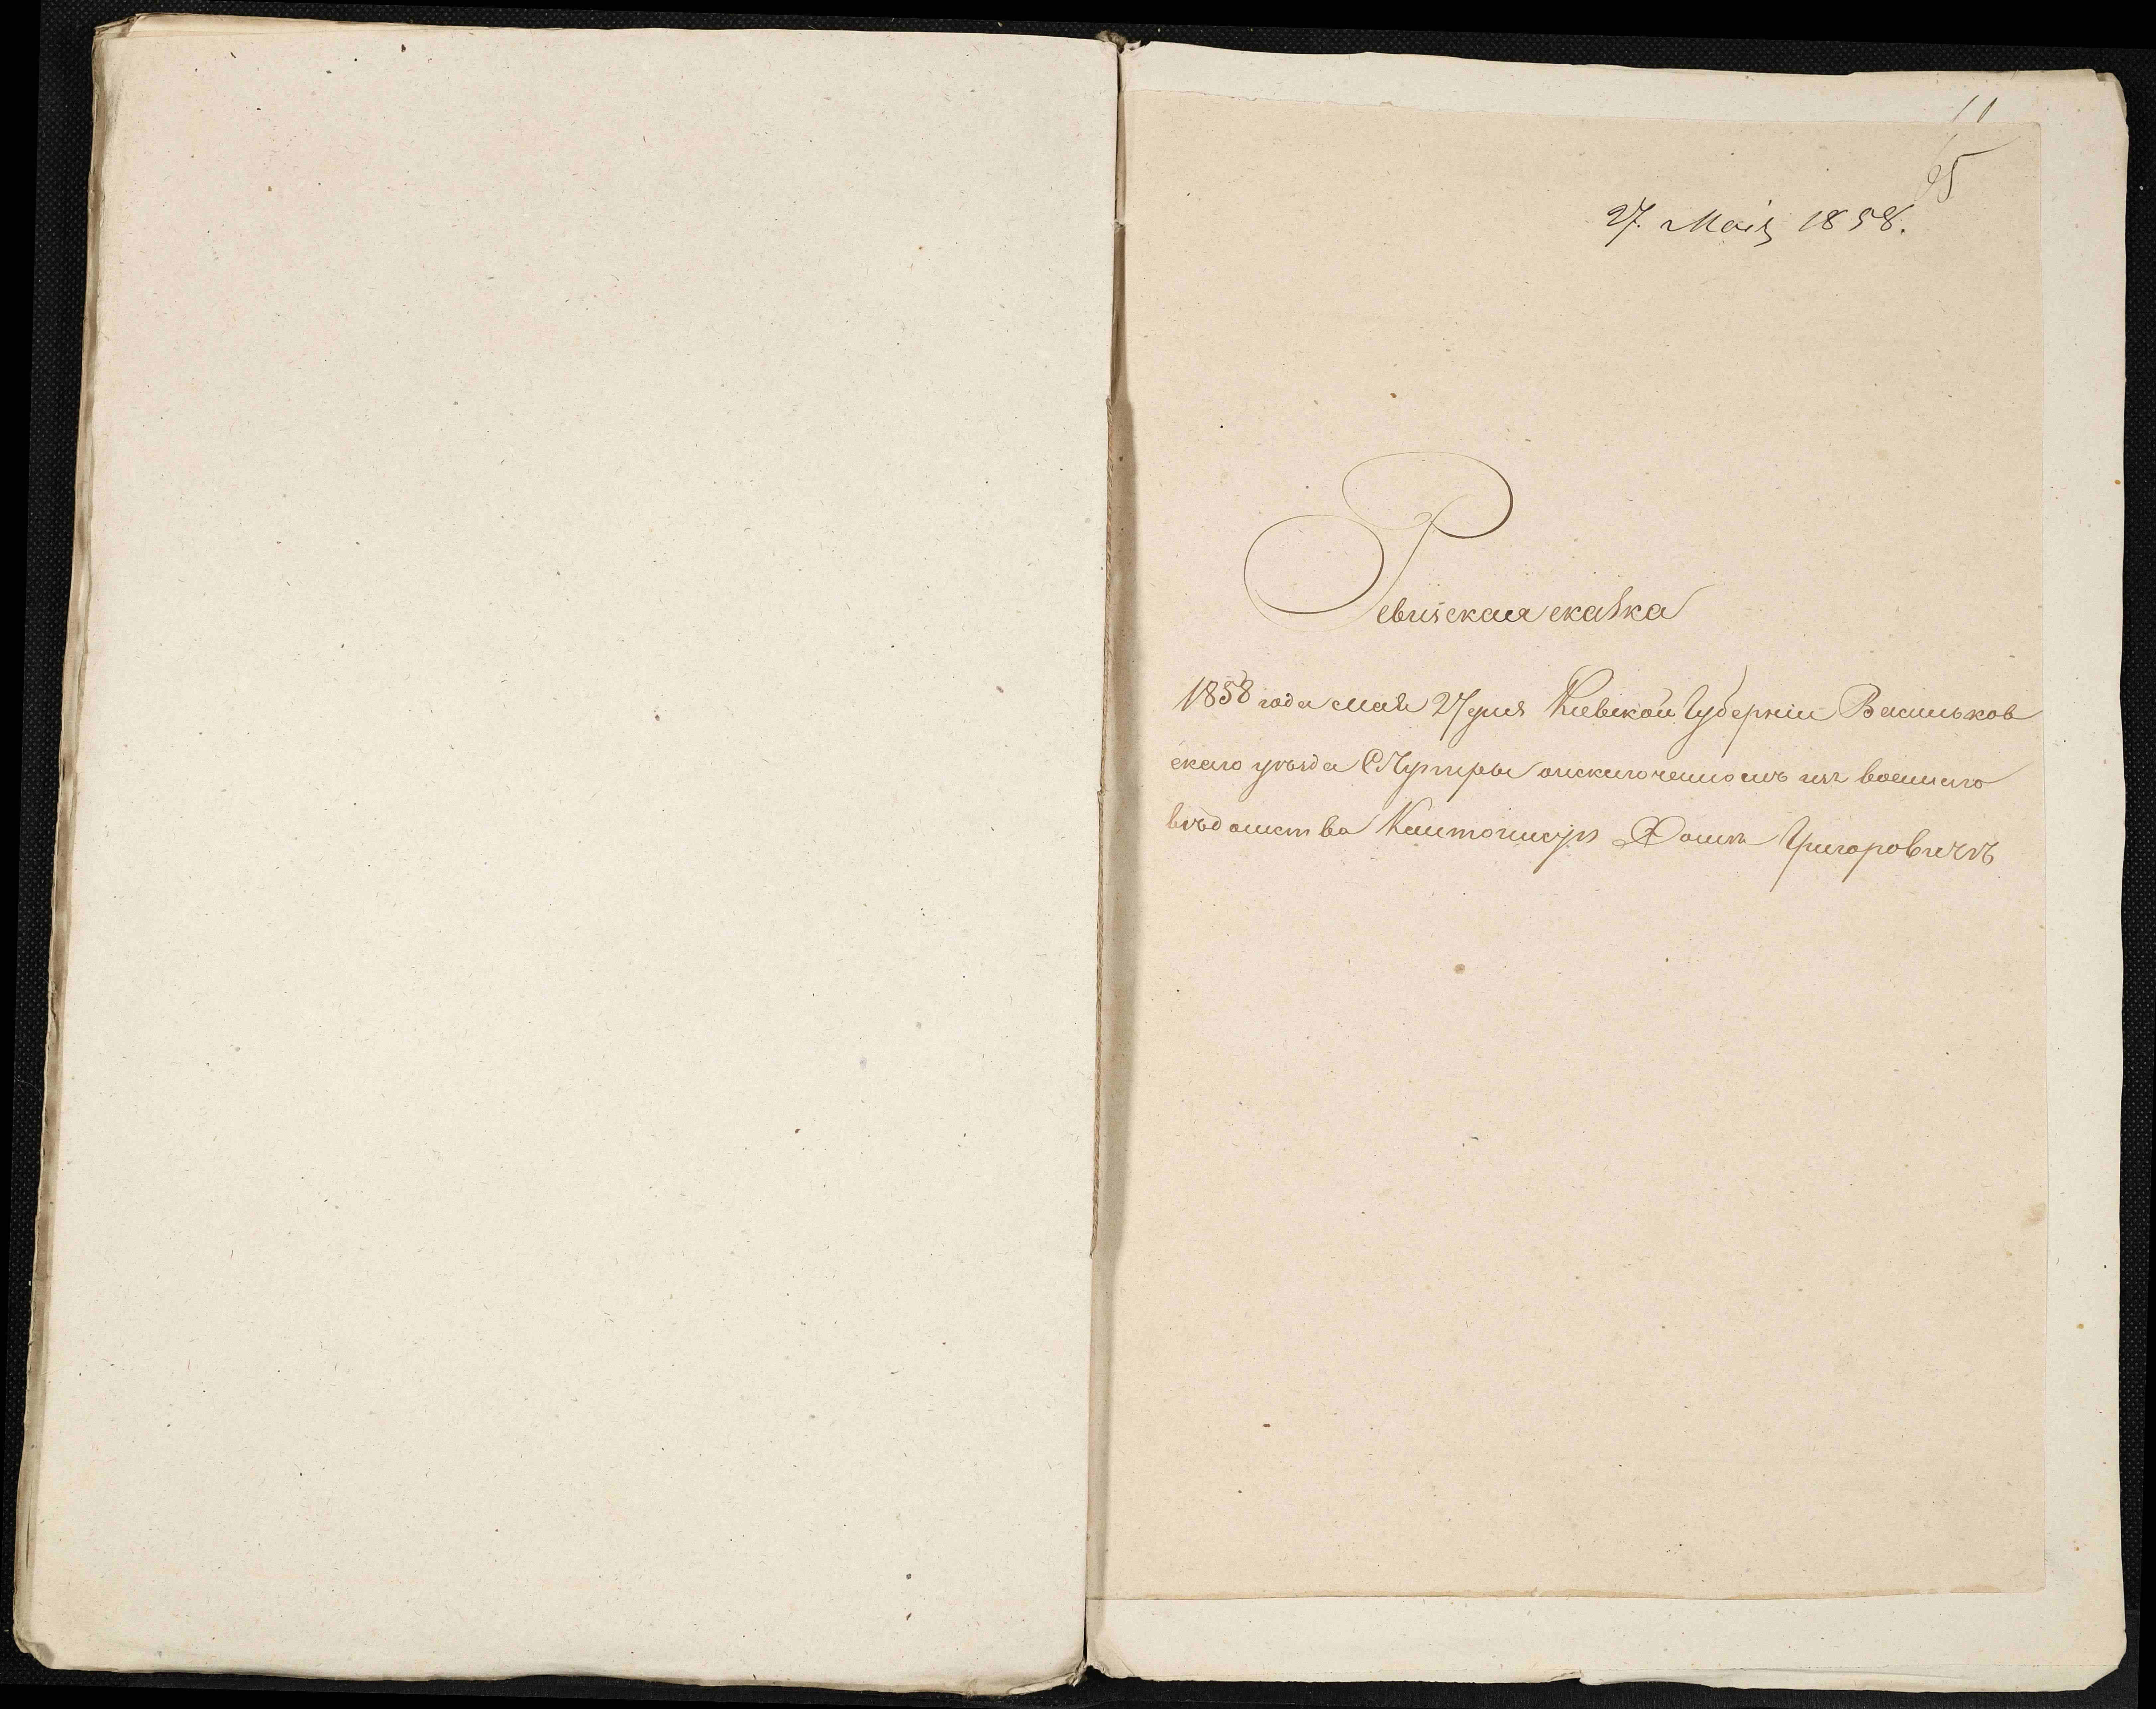 11
65
27. Маія 1858.
Ревизская сказка
1858 года мая 27 дня Киевской Губерніи Васильков
скаго уѣзда С Чупыры о исключенномъ изъ военнаго
вѣдомства Кантонистѣ Фомѣ Григоровичѣ